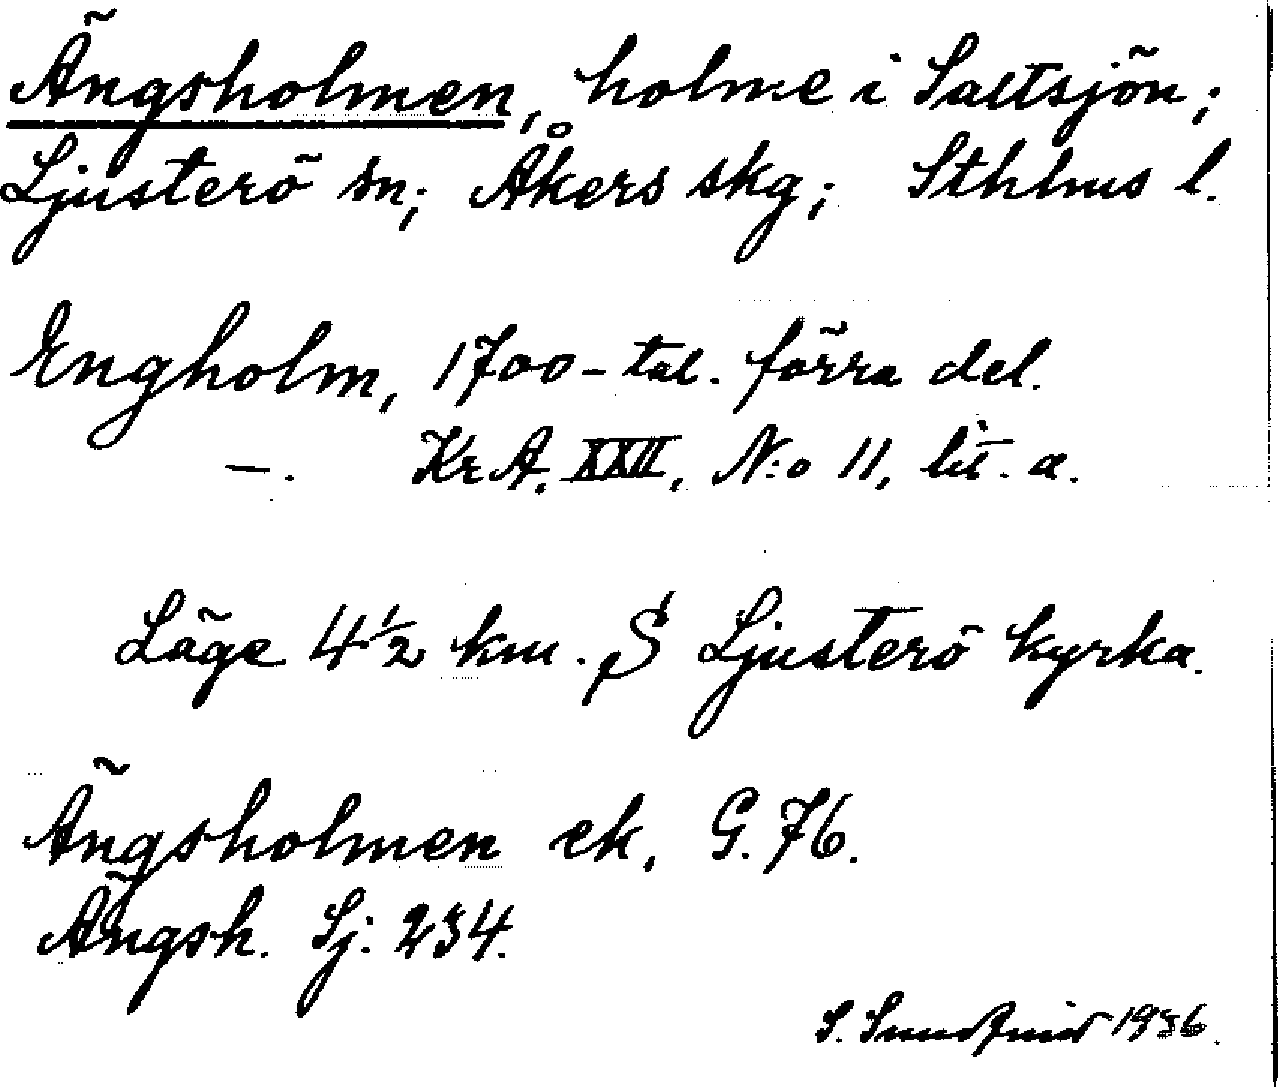 Ängsholmen, holme i Saltsjön;
Ljusterö sn; Åkers skg; Sthlms l.
Engholm, 1700-tal. förra del.
—. Kr.A. XXII, N:o 11, lit. a.
Läge 4 1/2 km. S Ljusterö kyrka.
Ängsholmen ek, G. 76.
Ängsh. Sj: 234.
S. 1936.